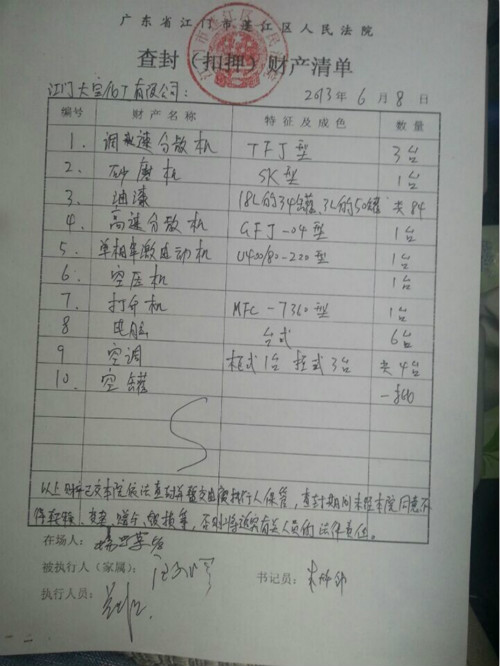 广东省江门市蓬江区人民法院
查封(扣押)财产清单
江门 有限公司: 2013年6月8日
编号 财产名称 特征及成色 数量
1. 调 速分散机 TFJ型 3台
2. 砂磨机 SK型 1台
3. 油漆 18L的34罐、3L的50罐 共84
4. 高速分散机 GFJ-04型 1台
5. 单相串激电动机 U400/80-220型 1台
6. 空压机 1台
7. 打印机 MFC-7360型 1台
8 电脑 台式 6台
9 空调 柜式1台 挂式3台 共4台
10. 空罐 一批
以上财产已交本院依法查封并暂交由被执行人保管,查封期间未经本院同意不
得转移、变卖、赠与、毁损等,否则将追究有关人员的法律责任。
在场人:
被执行人(家属): 书记员:
执行人员: